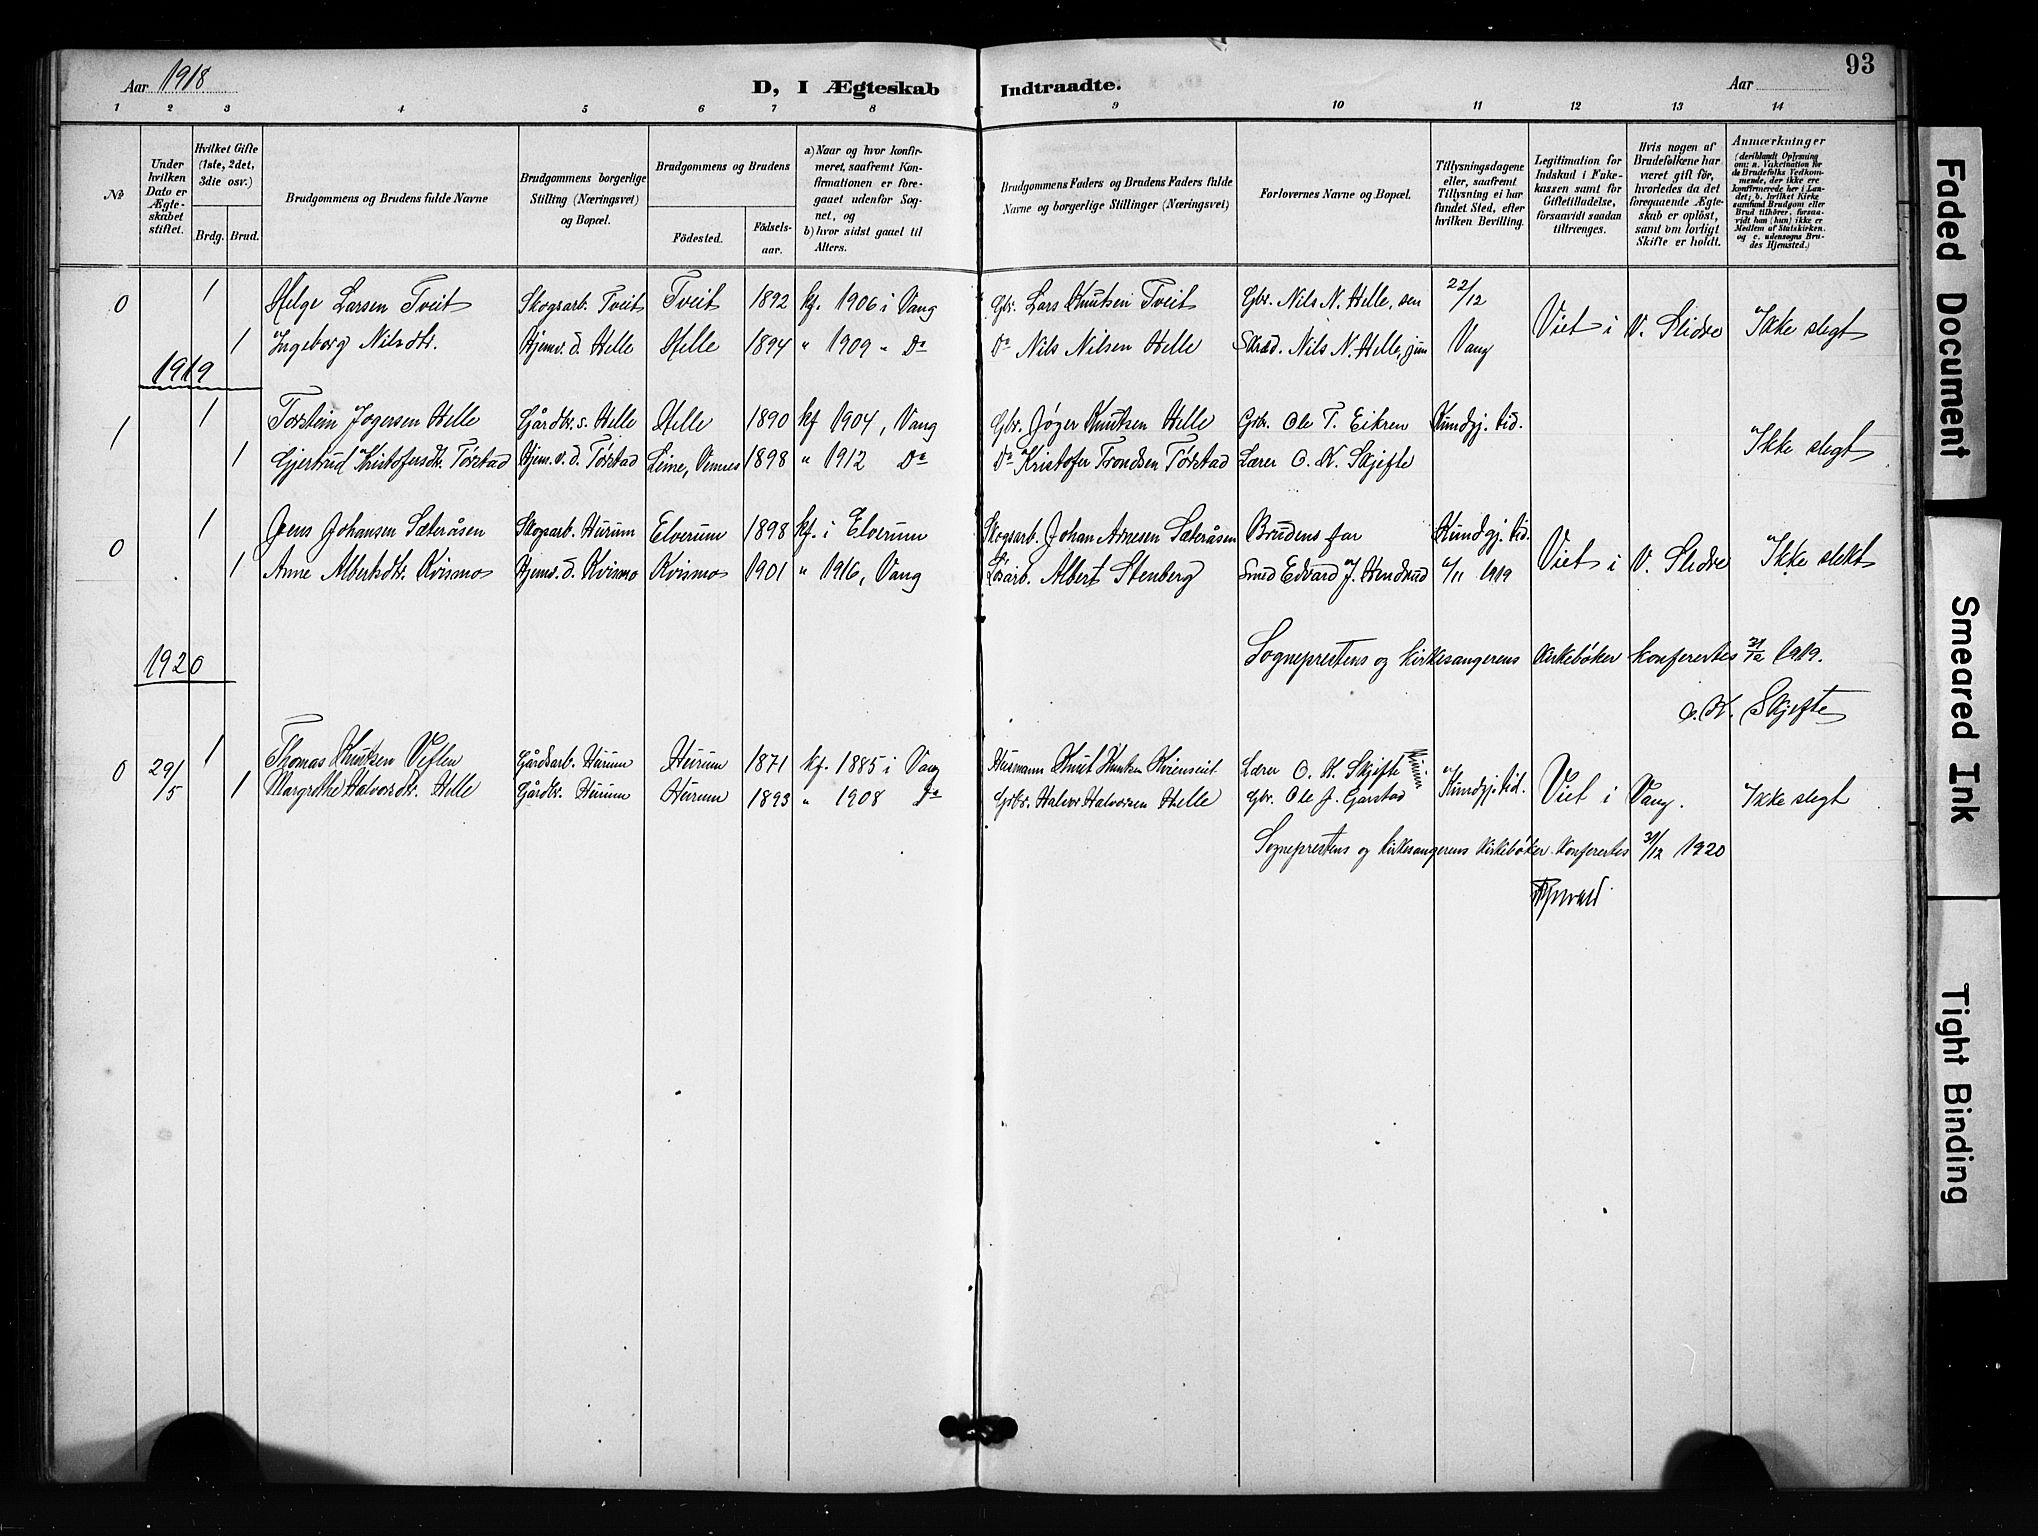 93
Aar 1918
D, I Ægteskab Indtraadte.
Aar
1 2 3 4 5 6 7 8 9 10 11 12 13 14
No
Under hvilken Dato er Ægteskabet stiftet.
Hvilket Gifte (1ste, 2det, 3die osv.)
Brdg. Brud.
Brudgommens og Brudens fulde Navne
Brudgommens borgerlige Stilling (Næringsvei) og Bopæl.
Brudgommens og Brudens
Födested.
Födselsaar.
a) Naar og hvor konfirmeret, saafremt Konfirmationen er foregaaet udenfor Sognet, og
b) hvor sidst gaaet til Alters.
Brudgommens Faders og Brudens Faders fulde Navne og borgerlige Stillinger (Næringsvei)
Forlovernes Navne og Bopæl.
Tillysningsdagene eller, saafremt Tillysning ei har fundet Sted, efter hvilken Bevilling.
Legitimation for Indskud i Enkekassen samt for Giftetilladelse, forsaavidt saadan tiltrænges.
Hvis nogen af Brudefolkene har været gift för, hvorledes da det foregaaende Ægteskab er oplöst, samt om lovligt Skifte er holdt.
Anmærkninger
(deriblandt Oplysning om: a. Vakcination for de Brudefolks Vedkommende, der ikke ere konfirmerede her i Landet; b. hvilket Kirkesamfund Brudgom eller Brud tilhörer, forsaavidt han (hun) ikke er Medlem af Statskirken, og c. udensogns Brudes Hjemsted.)
0 1 Helge Larsen Tveit Skogsarb. Tveit Tveit 1892 kf. 1906 i Vang Gbr. Lars Knutsen Tveit Gbr. Nils N. Helle, sen 22/12
1 Ingeborg Nilsdtr. Hjemv. d. Helle Helle 1894 " 1909 - Do Do Nils Nilsen Helle Skræd. Nils N. Helle, jun Vang Viet i V. Slidre Ikke slegt
1919
1 1 Torstein Jøgersen Helle Gårdbr.s. Helle Helle 1890 kf 1904, Vang Gbr. Jøger Knutsen Helle Grbr. Ole T. Eikren Kundgj. tid.
1 Gjertrud Kristofersdtr. Tørstad Hjem.v. d. Tørstad Leine, Vennes 1898 " 1912 Do Do Kristofer Trondsen Tørstad Lærer O. K. Skjefte Ikke slegt
0 1 Jens Johansen Sæteråsen Skogsarb. Hurum Elverum 1898 kf. i Elverum Skogsarb. Johan Arnesen Sæteråsen Brudens far Kundgj. tid.
1 Anne Albertsdtr. Kvismo Hjemv. d. Kvismo Kvismo 1901 " 1916, Vang Løsarb. Albert Stenberg Smed Edvard J. Hendrud /11 1919 Viet i V. Slidre Ikke slekt
Sogneprestens og kirkesangerens kirkebøker konferertes 31/12 1919.
1920
O. K. Skjefte
0 29/5 1 Thomas Knutsen Veflen Gårdsarb. Hurum Hurum 1871 kf. 1885 i Vang Husmann Knut Knutsen Lærer O. K. Skjefte Kundgj. tid.
1 Margrethe Halvorsdtr. Helle Gårdbr. Hurum Hurum 1893 " 1908 Do Grbr. Halvor Halvorsen Helle Gbr. Ole J. Garstad Viet i Vang. Ikke slegt
Sogneprestens og kirkesangerens kirkebøker konferertes 31/12 1920
Faded Document
Smeared Ink
Tight Binding